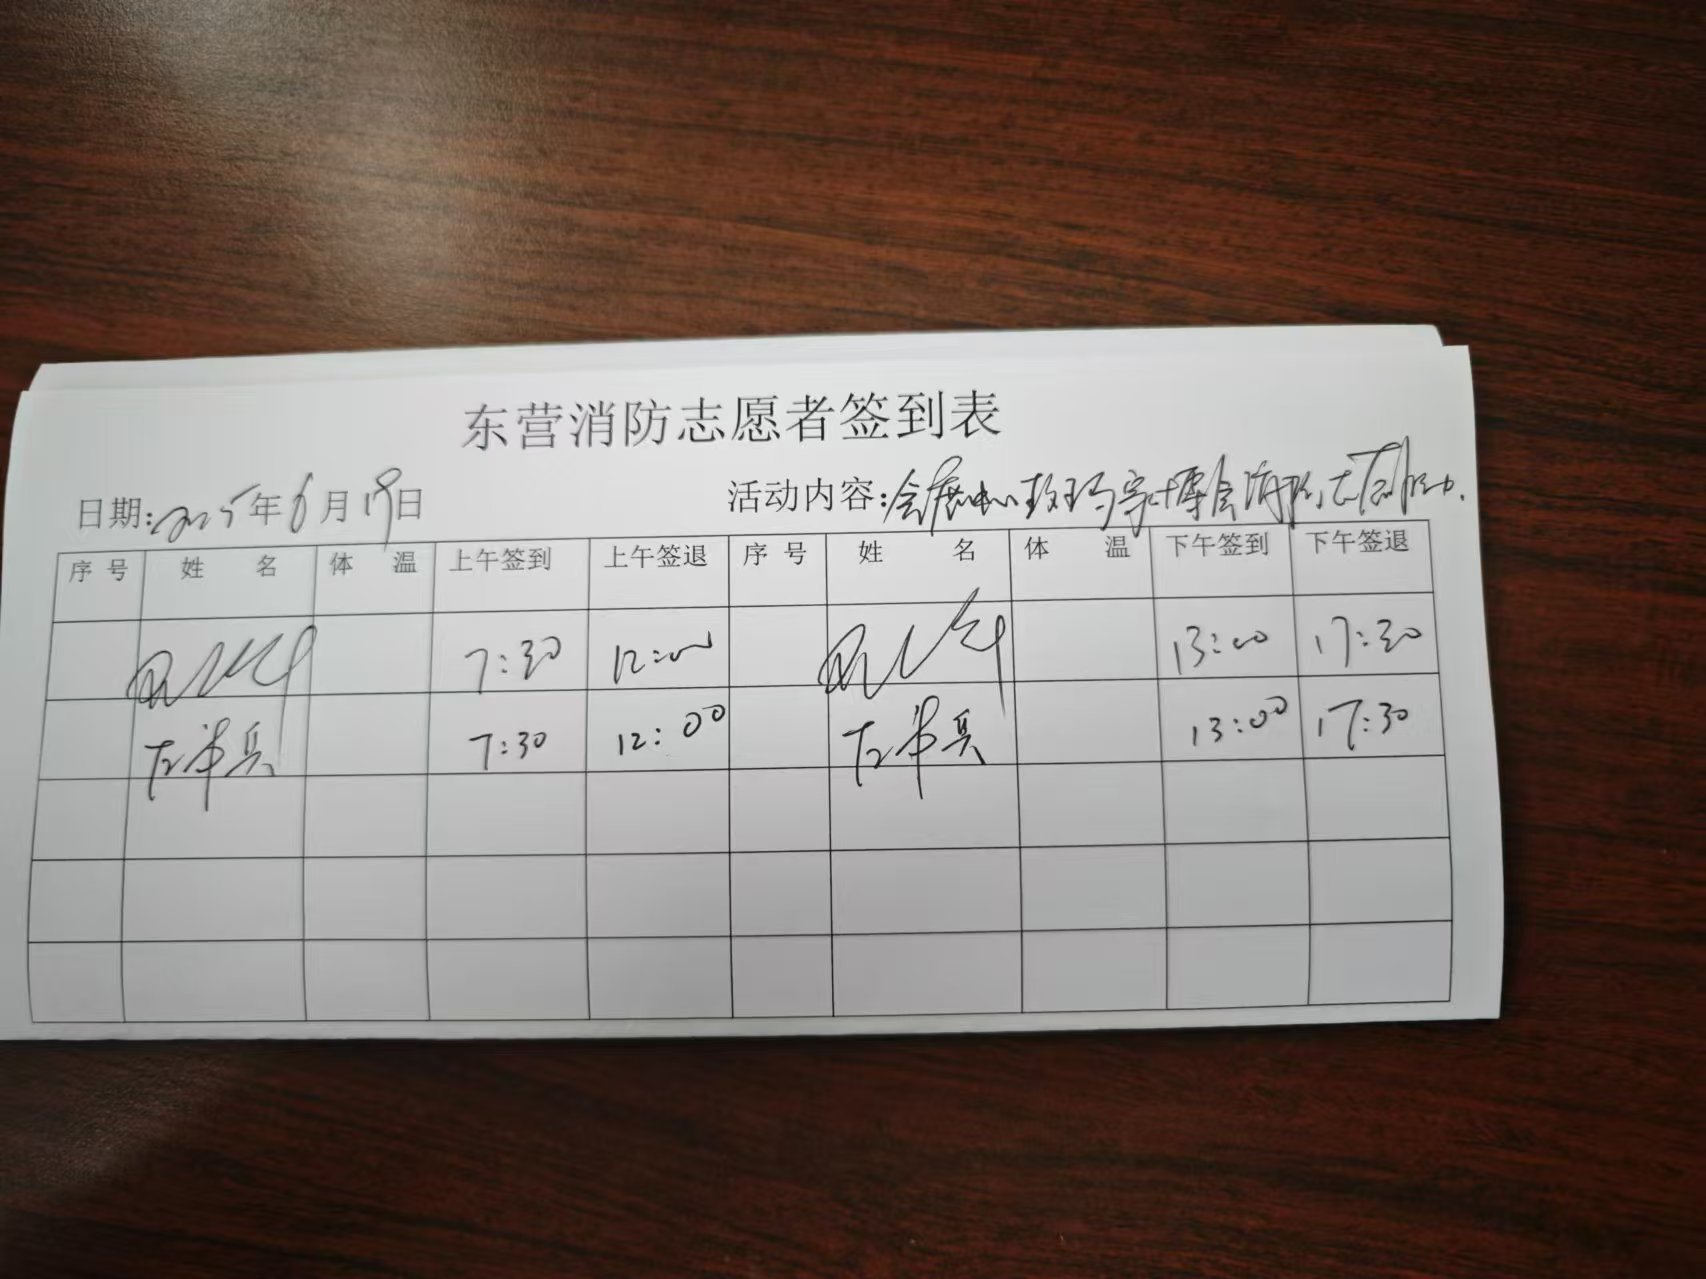 东营消防志愿者签到表
日期:2025年6月19日 活动内容:会展中心 博会消防志愿服务.
序号 姓 名 体 温 上午签到 上午签退 序号 姓 名 体 温 下午签到 下午签退
7:30 12:00 13:00 17:30
左军兵 7:30 12:00 左军兵 13:00 17:30